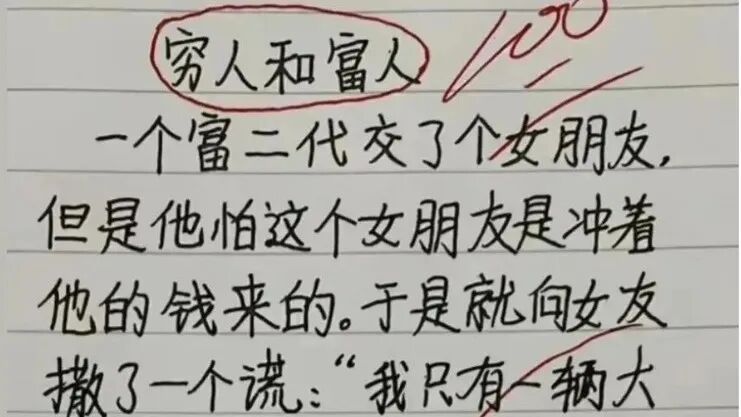 穷人和富人 100
一个富二代交了个女朋友,
但是他怕这个女朋友是冲着
他的钱来的。于是就向女友
撒了一个谎:“我只有一辆大